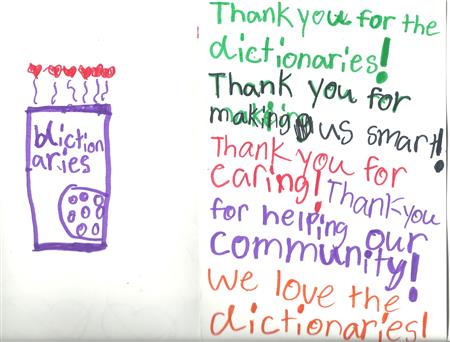 bliction
aries
Thank you for the
dictionaries!
Thank you for
making us smart!
Thank you for
caring! Thank you
for helping our
community!
We love the
dictionaries!